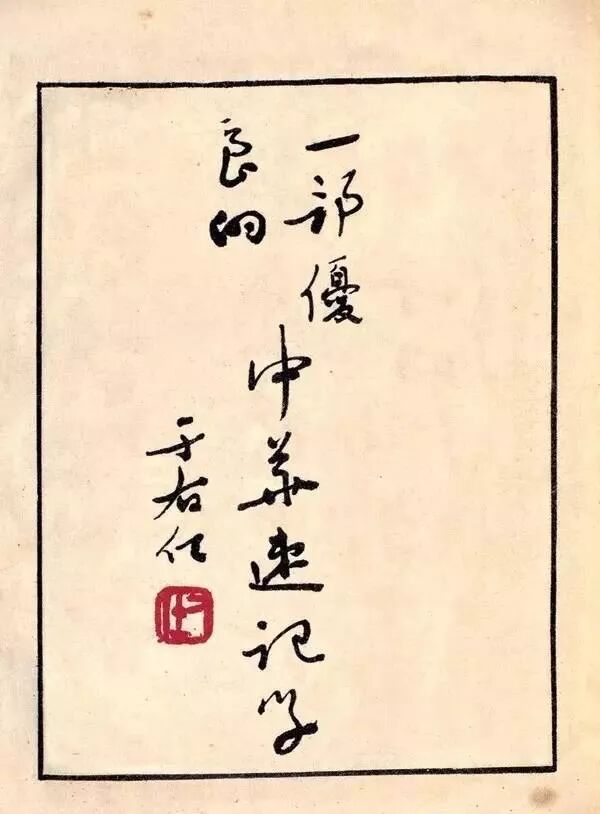 一部優
良的
中華速記學
于右任